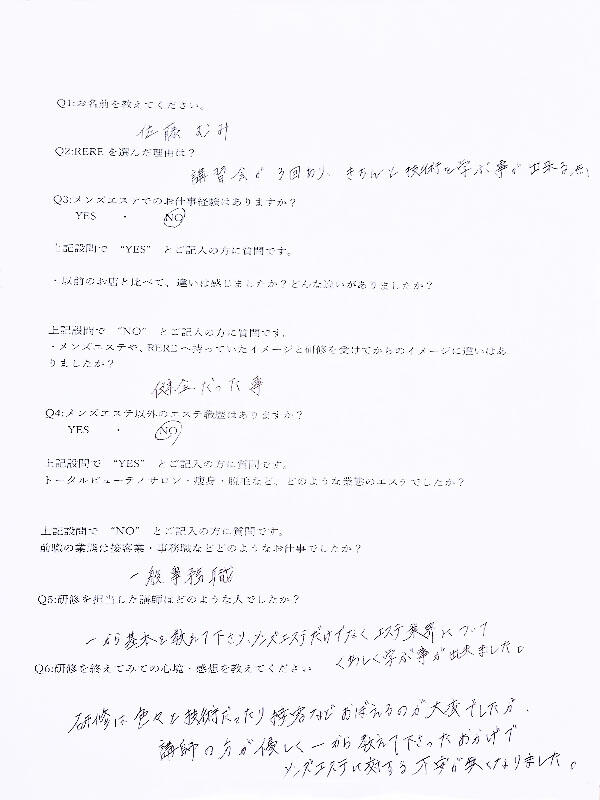 Q1:お名前を教えてください。
佐藤 むみ
Q2:REREを選んだ理由は？
講習会が3回あり、きちんと技術を学ぶ事が出来る為
Q3:メンズエステでのお仕事経験はありますか？
YES ・ NO
上記設問で “YES” とご記入の方に質問です。
・以前のお店と比べて、違いは感じましたか？どんな違いがありましたか？
上記設問で “NO” とご記入の方に質問です。
・メンズエステや、REREへ持っていたイメージと研修を受けてからのイメージに違いはあ
りましたか？
健全だった事
Q4:メンズエステ以外のエステ職歴はありますか？
YES ・ NO
上記設問で “YES” とご記入の方に質問です。
トータルビューティサロン・痩身・脱毛など、どのような業態のエステでしたか？
上記設問で “NO” とご記入の方に質問です。
前職の業態は接客業・事務職などどのようなお仕事でしたか？
一般事務職
Q5:研修を担当した講師はどのような人でしたか？
一から基本を教えて下さり、メンズエステだけでなくエステ業界について
くわしく学ぶ事が出来ました。
Q6:研修を終えてみての心境・感想を教えてください
研修は色々と技術だったり接客などおぼえるのが大変でしたが、
講師の方が優しく一から教えて下さったおかげで
メンズエステに対する不安が無くなりました。